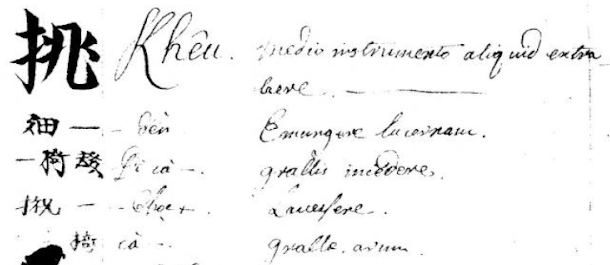 挑 Khêu. medio instrumento aliquid extra
here. —
畑 — – đèn Emungere lucernam.
Đi cà –. grallis incedere.
— – Lacessere.
cà –. grallæ. arum.